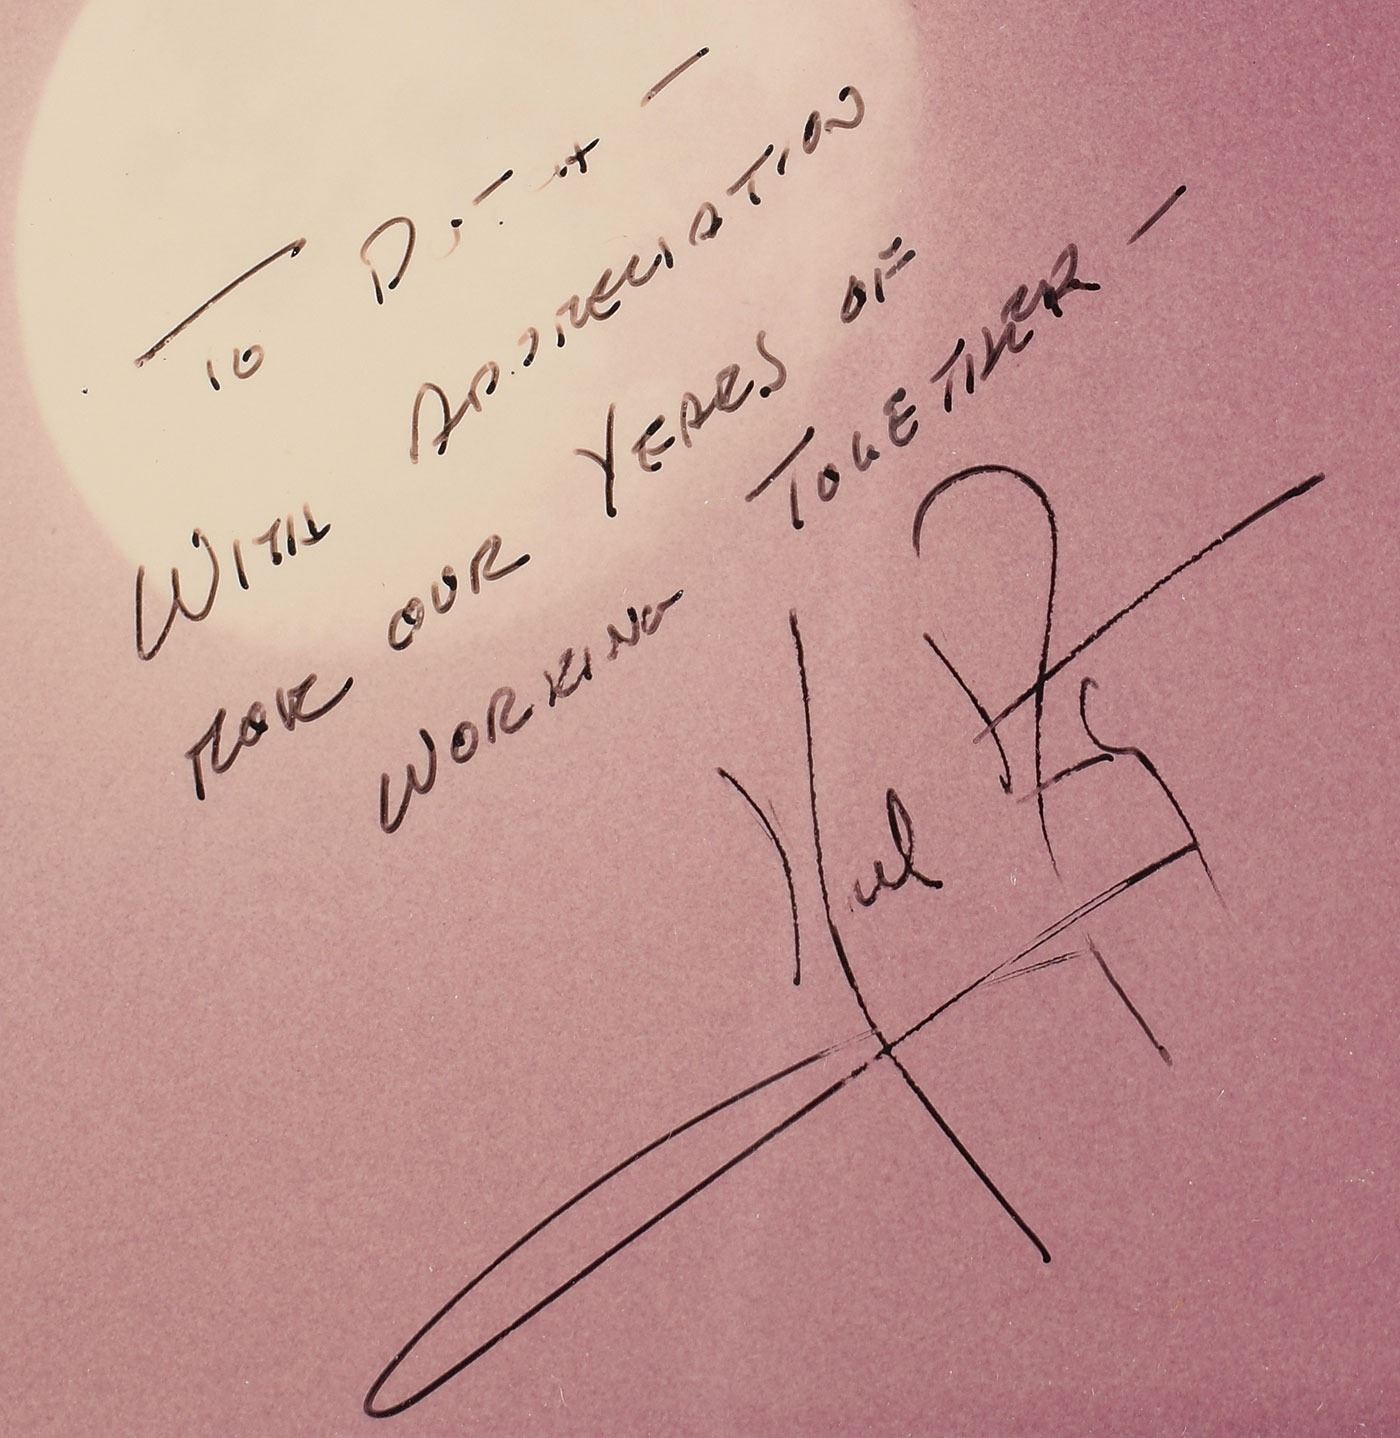 To
With Appreciation
For our Years of
Working Together —